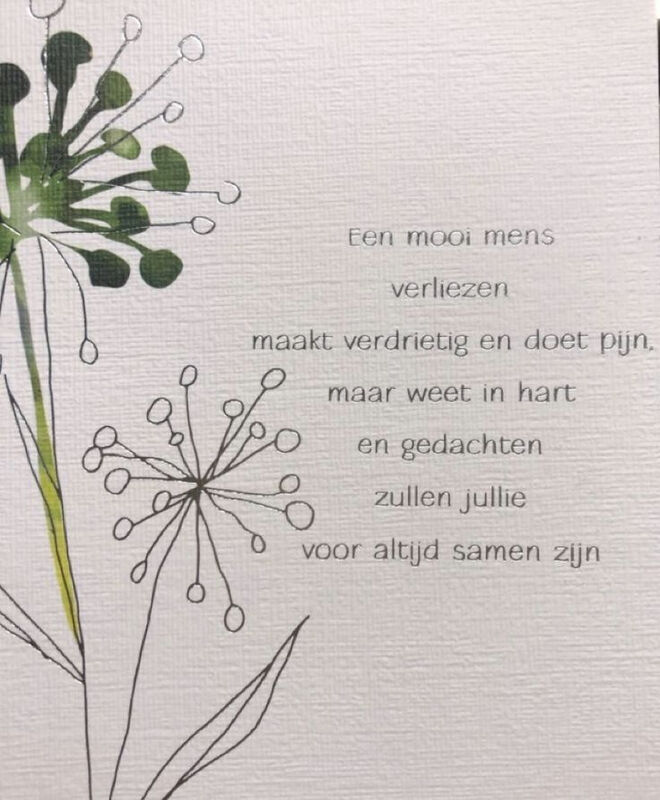 Een mooi mens
verliezen
maakt verdrietig en doet pijn,
maar weet in hart
en gedachten
zullen jullie
voor altijd samen zijn